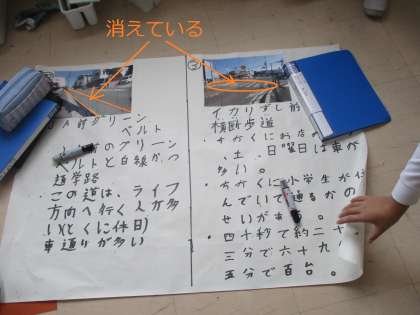 消えている
JA前グリーン
ベルト
のグリーン
ベルトと白線がつ
通学路
この道は、ライフ
方向へ行く人が多
い(とくに休日)
車通りが多い
②
イカリずし前
横断歩道
・ちかくにお店が
、土、日曜日は車が
ない。
・ちかくに小学生が
んでいて通るかの
せいがあ
・四十秒で約二十
三分で六十九
五分で百台。